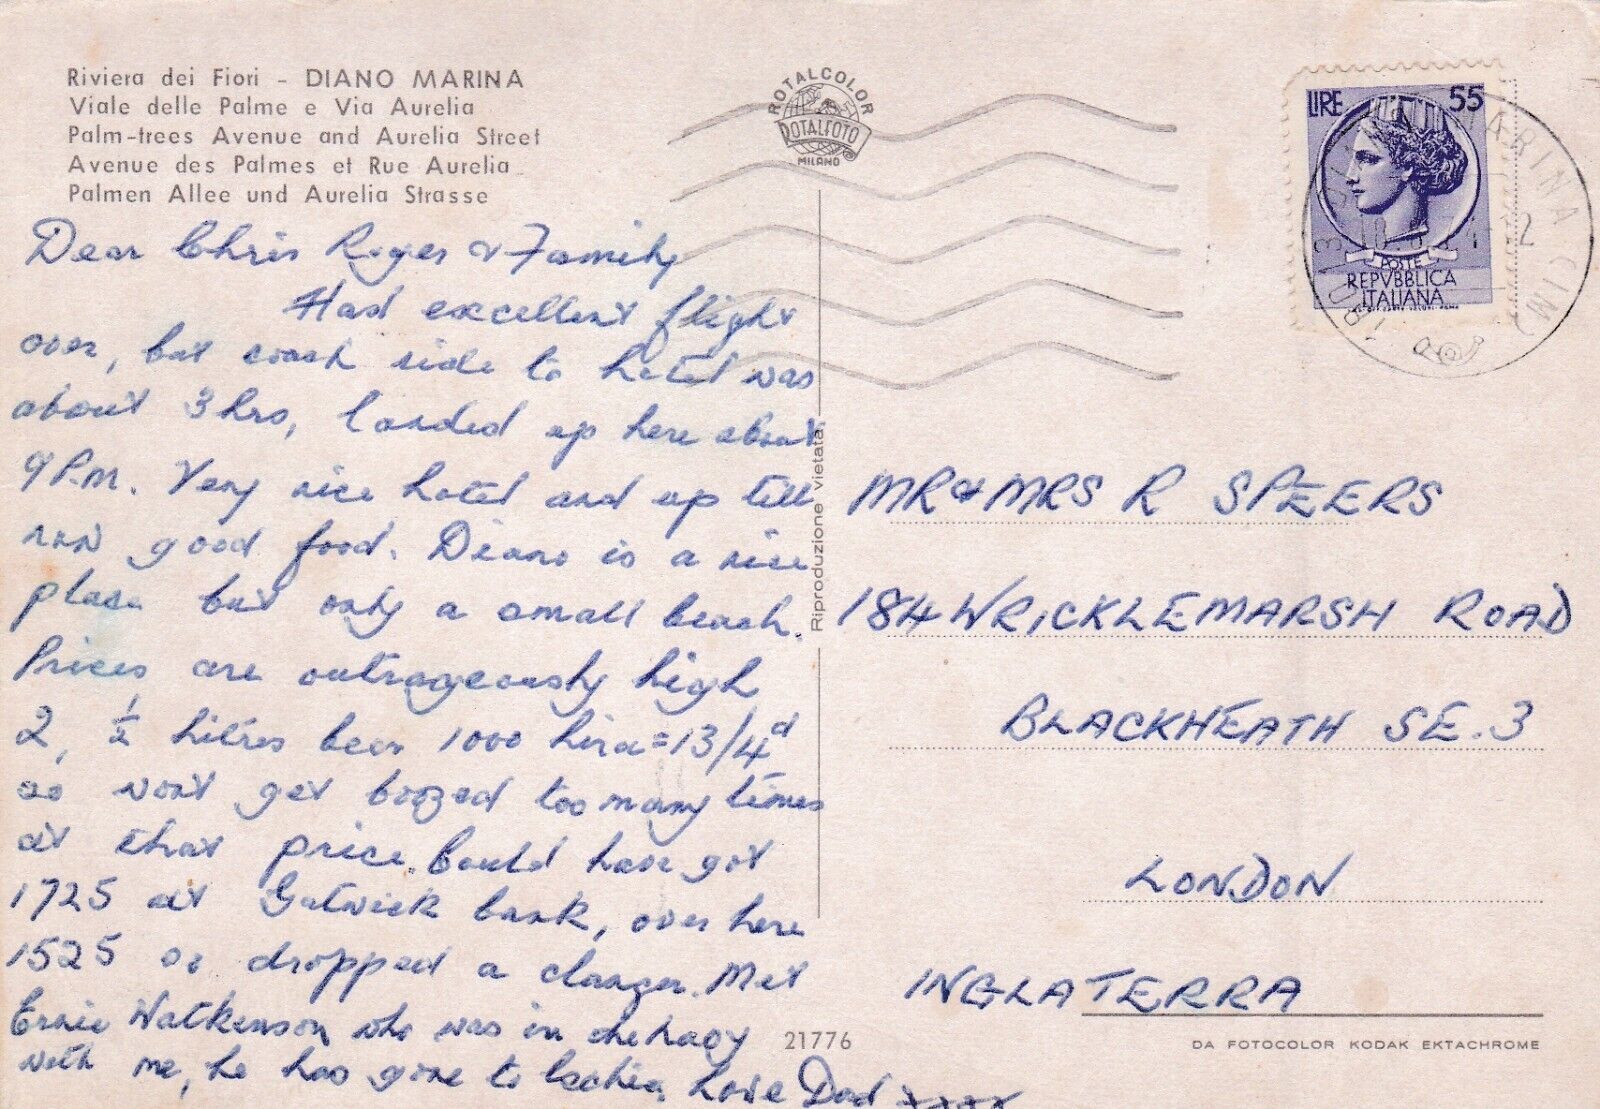 Riviera dei Fiori - DIANO MARINA
Viale delle Palme e Via Aurelia
Palm-trees Avenue and Aurelia Street
Avenue des Palmes et Rue Aurelia
Palmen Allee und Aurelia Strasse
Dear Chris Roger & Family
Had excellent flight
over, but coach ride to hotel was
about 3 hrs, landed up here about
9 P.M. Very nice hotel and up till
now good food. Diano is a nice
place but only a small beach.
Prices are outrageously high
2, ½ litres beer 1000 lira = 13/4d
so wont get boozed too many times
at that price. Could have got
1725 at Gatwick bank, over here
1525 so dropped a clanger. Met
Ernie Watkinson who was in the navy
with me, he has gone to Love Dad xxxx
ROTALCOLOR
ROTALFOTO
MILANO
Riproduzione vietata
21776
LIRE 55
POSTE
REPVBBLICA
ITALIANA
MARINA (IM)
MR & MRS R SPEERS
184 WRICKLEMARSH ROAD
BLACKHEATH SE.3
LONDON
INGLATERRA
DA FOTOCOLOR KODAK EKTACHROME